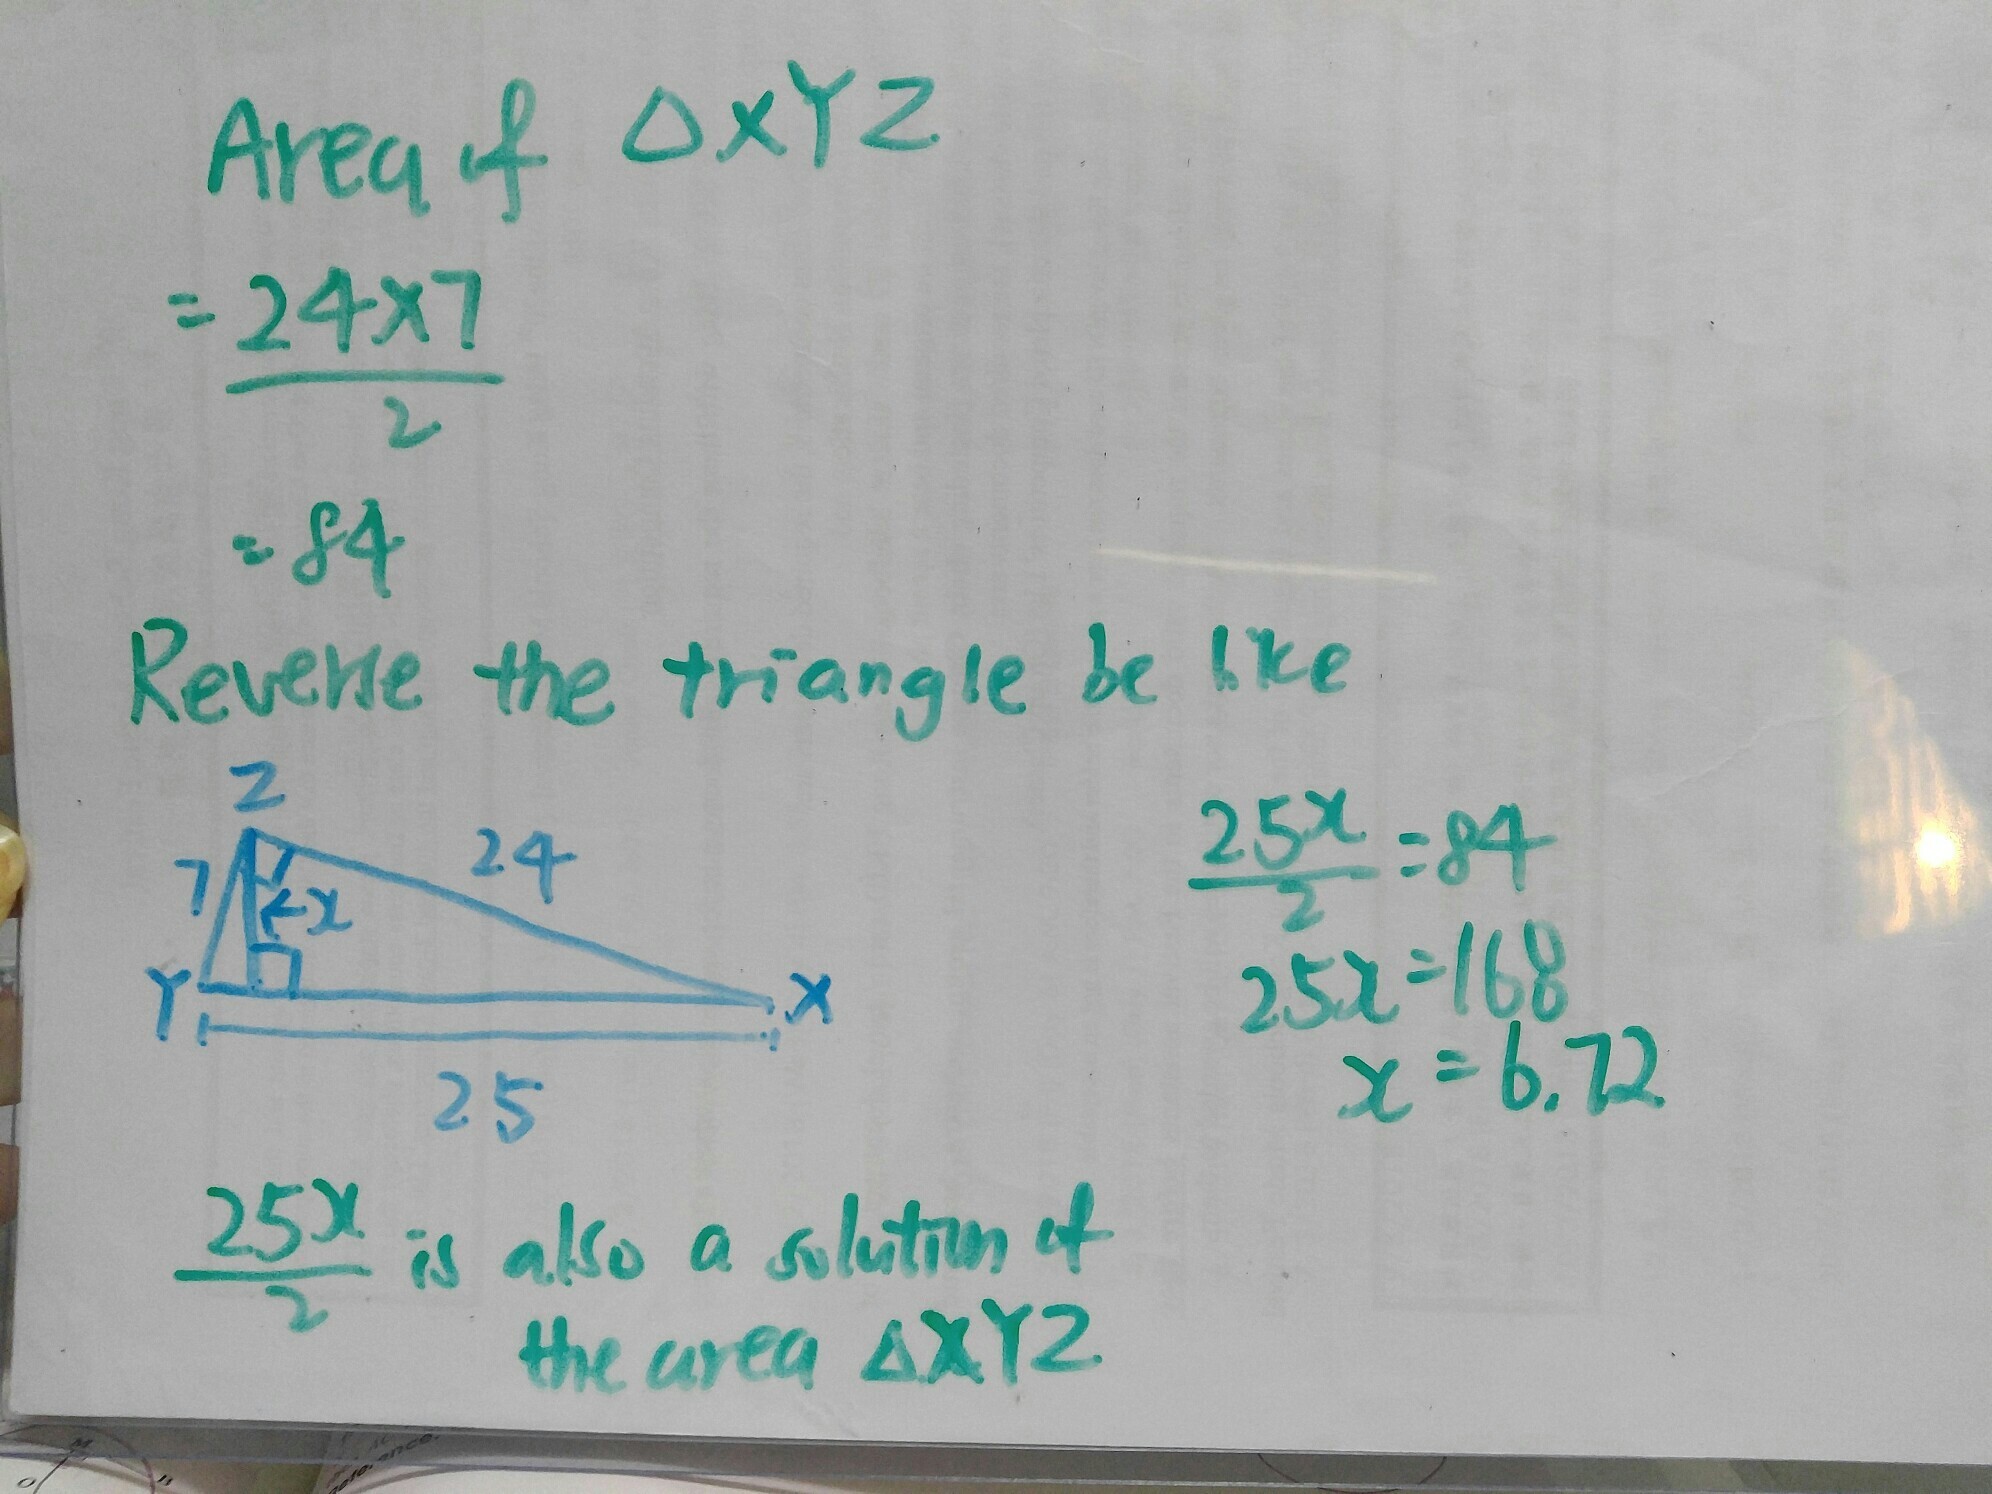 Area of △XYZ
= 24×7
2
= 84
Reverse the triangle be like
Z
7
24
←x
Y
X
25
25x/2 = 84
25x = 168
x = 6.72
25x/2 is also a solution of
the area △XYZ